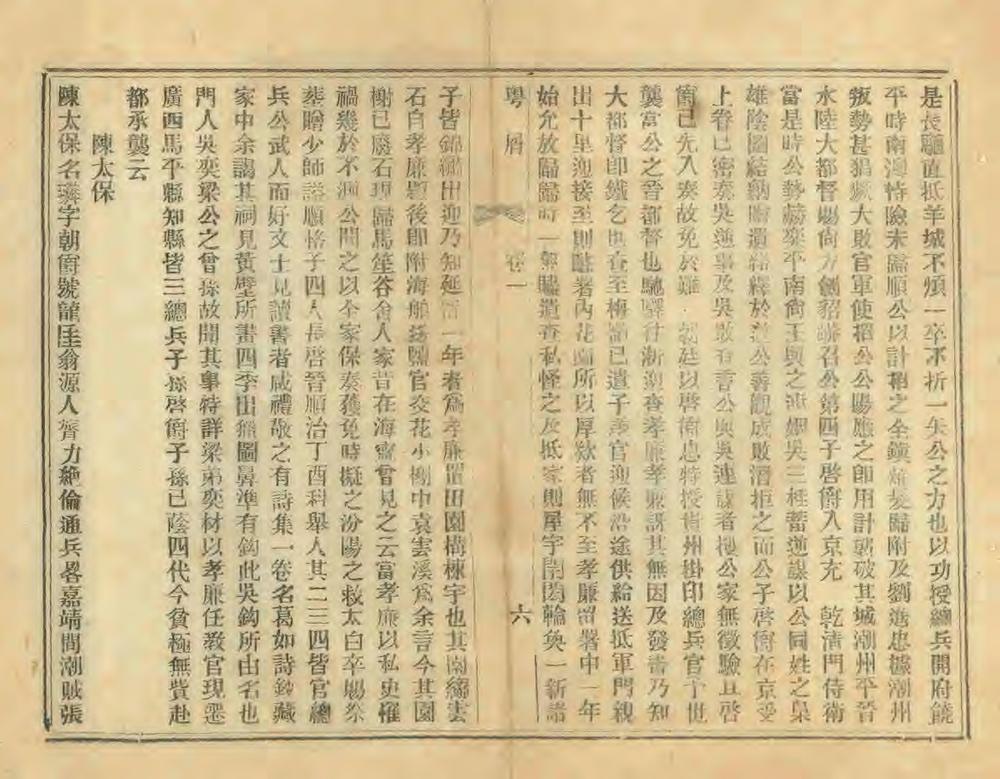 是長驅直抵羊城不煩一卒不折一矢公之力也以功授總兵開府饒
平時南澳恃險未歸順公以計招之全鎮薙髮歸附及劉進忠據潮州
叛勢甚猖獗大敗官軍使招公公陽應之即用計襲破其城潮州平晉
水陸大都督賜尚方劍貂蟒召公第四子啓爵入京充 乾清門侍衛
當是時公勢赫奕平南尚王與之連姻吳三桂蓄逆謀以公同姓之梟
雄陰圖結納遣 公善觀成敗潛拒之而公子啓爵在京受
上眷已密奏吳逆事及吳敗有言公與吳連謀者搜公家無徵驗且啓
爵已先入奏故免於難 朝廷以啓爵忠特授 州掛印總兵官予世
襲當公之晉都督也馳驛往浙迎查孝廉孝廉訝其無因及發書乃知
大都督即鐵丐也查至梅嶺已遣子 官迎候沿途供給送抵軍門親
出十里迎接至則 署內花園所以厚欵者無不至孝廉留署中一年
始允放歸歸時一 贐遺查私怪之及抵家則犀宇閈閎輪奐一新諸
粵屑 卷一 六
子皆錦繡出迎乃知延 一年者爲孝廉置田園構棟宇也其園縐雲
石自孝廉歿後即附海舶 歸官交花小榭中袁雲溪爲余言今其園
榭已廢石現歸馬笙谷舍人家昔在海甯曾見之云當孝廉以私史罹
禍幾於不測公聞之以全家保奏獲免時擬之汾陽之救太白卒賜祭
葬贈少師諡順恪子四人長啓晉順治丁酉科舉人其二三四皆官總
兵公武人而好文士見讀書者咸禮敬之有詩集一卷名葛如詩鈔藏
家中余謁其祠見黃璧所畫四季出獵圖鼻準有鈎此吳鈎所由名也
門人吳奕梁公之曾孫故聞其事特詳梁弟奕材以孝廉任教官現選
廣西馬平縣知縣皆三總兵子孫啓爵子孫已蔭四代今貧極無貲赴
都承襲云
陳太保
陳太保名璘字朝爵號龍厓翁源人膂力絶倫通兵畧嘉靖間潮賊張